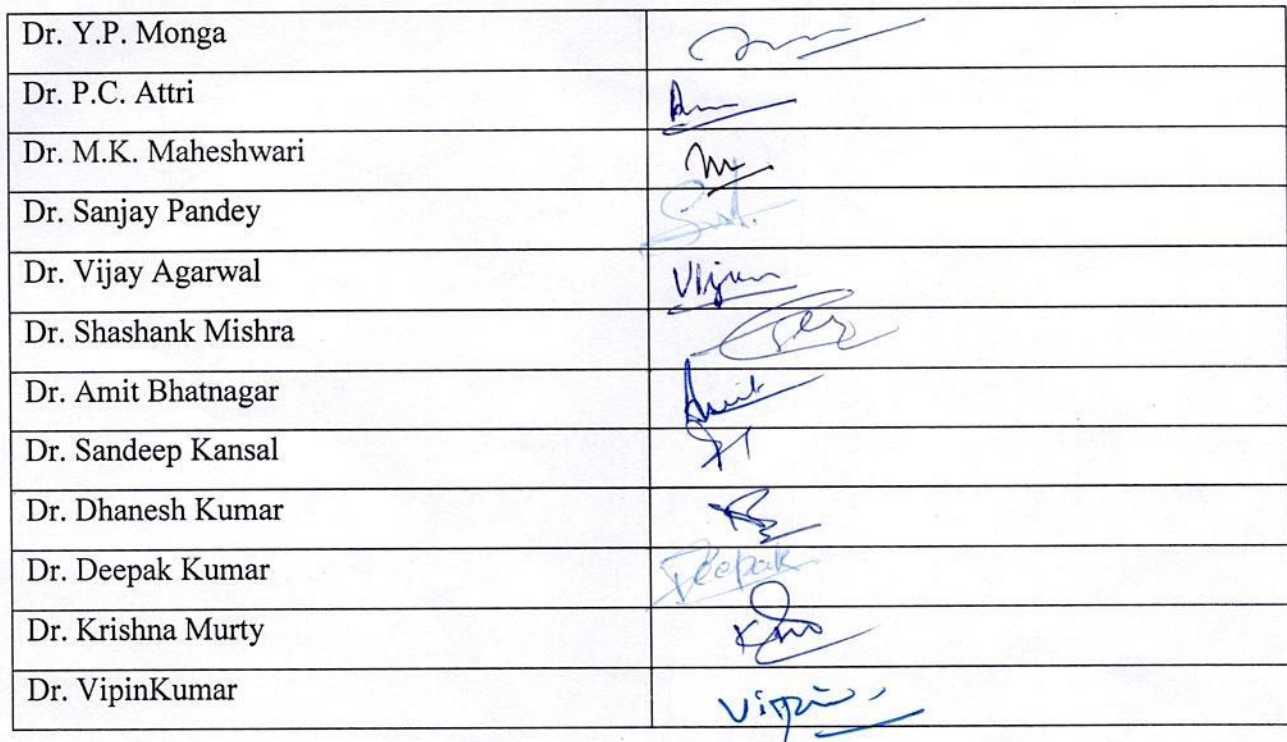 Dr. Y.P. Monga
Dr. P.C. Attri
Dr. M.K. Maheshwari
Dr. Sanjay Pandey
Dr. Vijay Agarwal Vijay
Dr. Shashank Mishra
Dr. Amit Bhatnagar Amit
Dr. Sandeep Kansal
Dr. Dhanesh Kumar
Dr. Deepak Kumar Deepak
Dr. Krishna Murty
Dr. VipinKumar Vipin